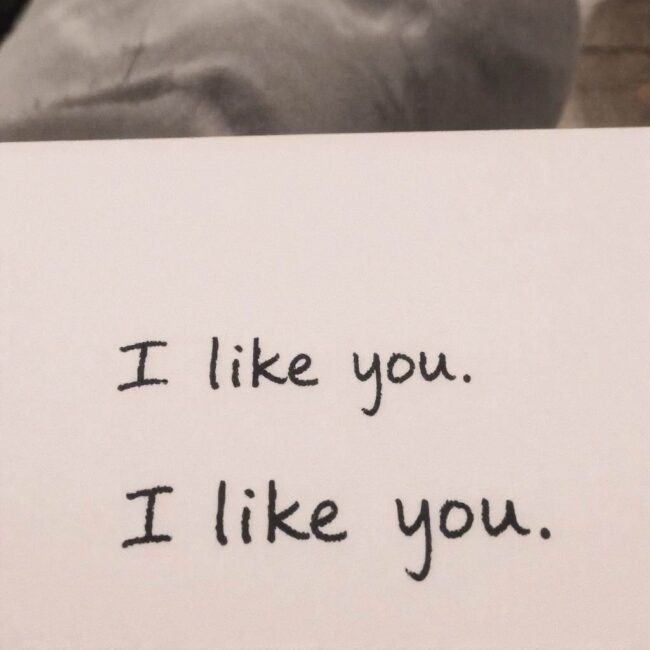 I like you.
I like you.